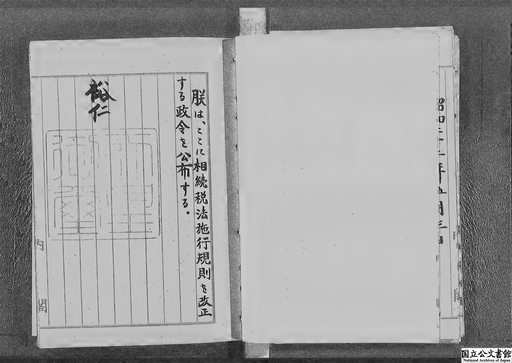 朕は、ここに相続税法施行規則を改正
する政令を公布する。
裕仁
内閣
国立公文書館
National Archives of Japan